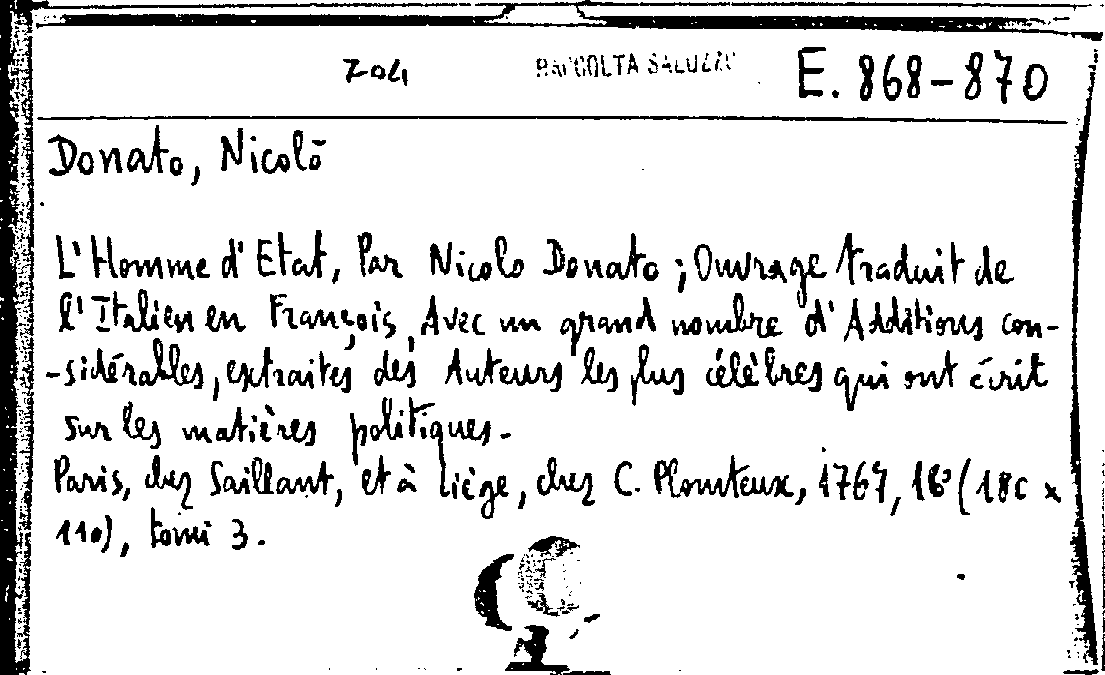 704 RACCOLTA SALUZZO E. 868-870
Donato, Nicolò
L'Homme d'Etat, Par Nicolo Donato; Ouvrage traduit de
l'Italien en François, Avec un grand nombre d'Additions con-
-sidérables, extraites des Auteurs les plus célèbres qui ont écrit
sur les matières politiques.
Paris, chez Saillant, et à Liége, chez C. Plomteux, 1767, 16° (180 x
110), tomi 3.